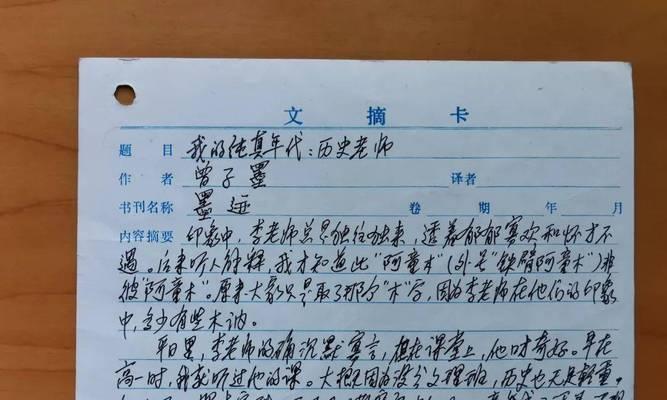 文摘卡
题 目 我的纯真年代：历史老师
作 者 曾子墨 译者
书刊名称 墨迹 卷 期 年 月
内容摘要 印象中，李老师总是独往独来，透着郁郁寡欢和怀才不
遇。后来听人解释，我才知道此“阿童木”（外号“铁臂阿童木”）非
彼“阿童木”。原来大家只是取了那个“木”字，因为李老师在他们的印象
中，多少有些木讷。
平日里，李老师的确沉默寡言，但在课堂上，他口才奇好。早在
高一时，我就听过他的课。大概因为没分文理班，历史也无足轻重，